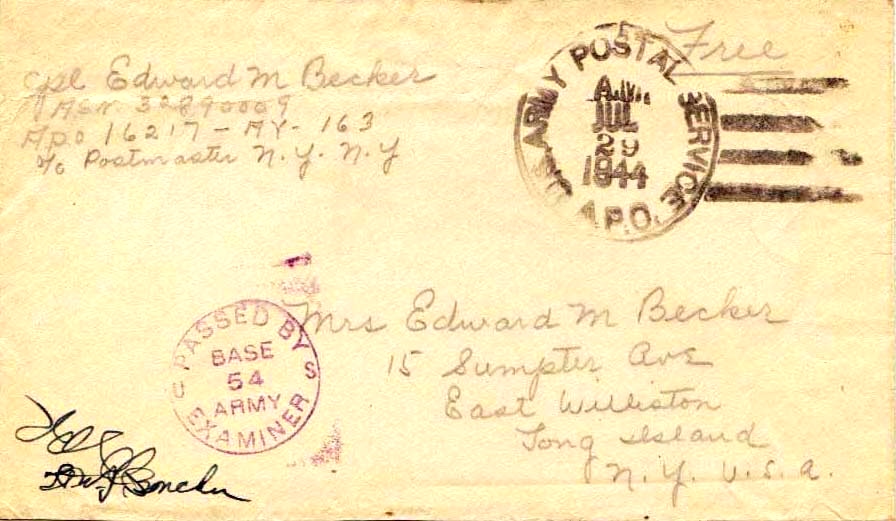 Free
Cpl Edward M Becker
ASN 32890009
APO 16217-AY-163
c/o Postmaster N.Y. N.Y
U.S. ARMY POSTAL SERVICE
A.M.
JUL
29
1944
A.P.O.
PASSED BY
BASE
54
ARMY
EXAMINER
U S
Mrs Edward M Becker
15 Sumpter Ave
East Williston
Long Island
N.Y. U.S.A.